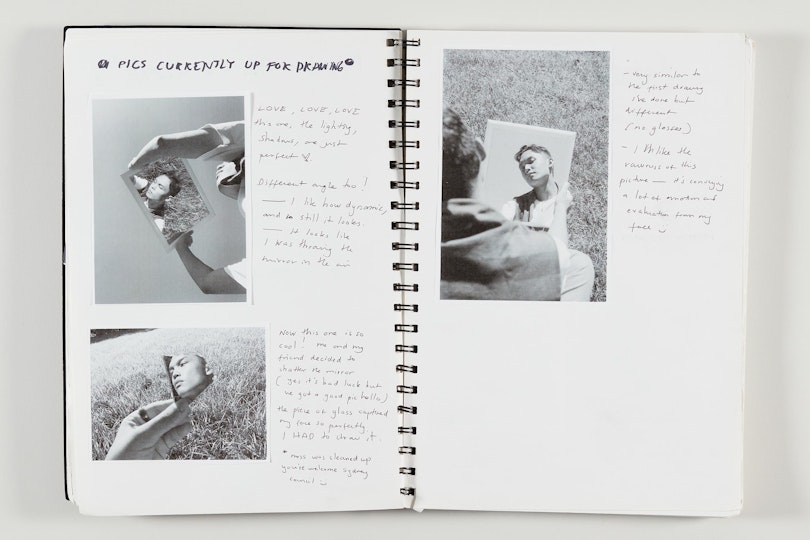 PICS CURRENTLY UP FOR DRAWING
LOVE, LOVE, LOVE
this one, the lighting,
shadows, are just
perfect
Different angle too!
— I like how dynamic,
and so still it looks.
— it looks like
I was throwing the
mirror in the air
Now this one is so
cool! me and my
friend decided to
shatter the mirror
(yes, it's bad luck but
we got a good pic hello)
the piece of glass captured
my face so perfectly
I HAD to draw it.
* mess was cleaned up
you're welcome sydney
council
- very similar to
the first drawing
I've done but
different
(no glasses)
- I like the
rawness of this
picture — it's conveying
a lot of emotion and
evaluation from my
face